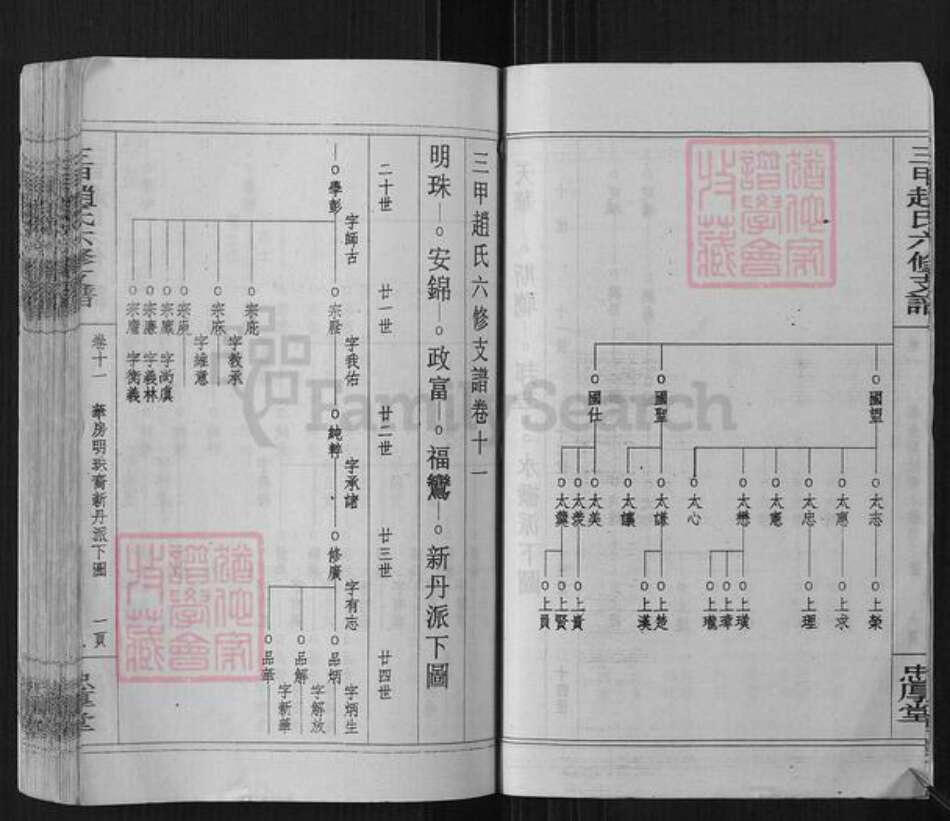 三甲趙氏六修支譜
忠厚堂
國望
國聖
國仕
太志
太憲
太忠
太懋
太心
太謙
太議
太美
太羨
太羹
上榮
上求
上理
上璞
上瑋
上瓏
上楚
上漢
上貴
上賢
上員
三甲趙氏六修支譜卷十一
明珠—安錦—政富—福鸞—新丹派下圖
二十世
廿一世
廿二世
廿三世
廿四世
學彭
字師古
字我佑
純粹
字承諸
修廣
字有志
品炳
字炳生
品解
字解放
品華
字新華
宗庇
字教承
宗庥
字維意
宗庾
宗廩
字尚虞
宗廉
字義林
字衡義
卷十一
華房明珠裔新丹派下圖
一頁
FamilySearch
猶他家譜學會收藏
猶他家譜學會收藏